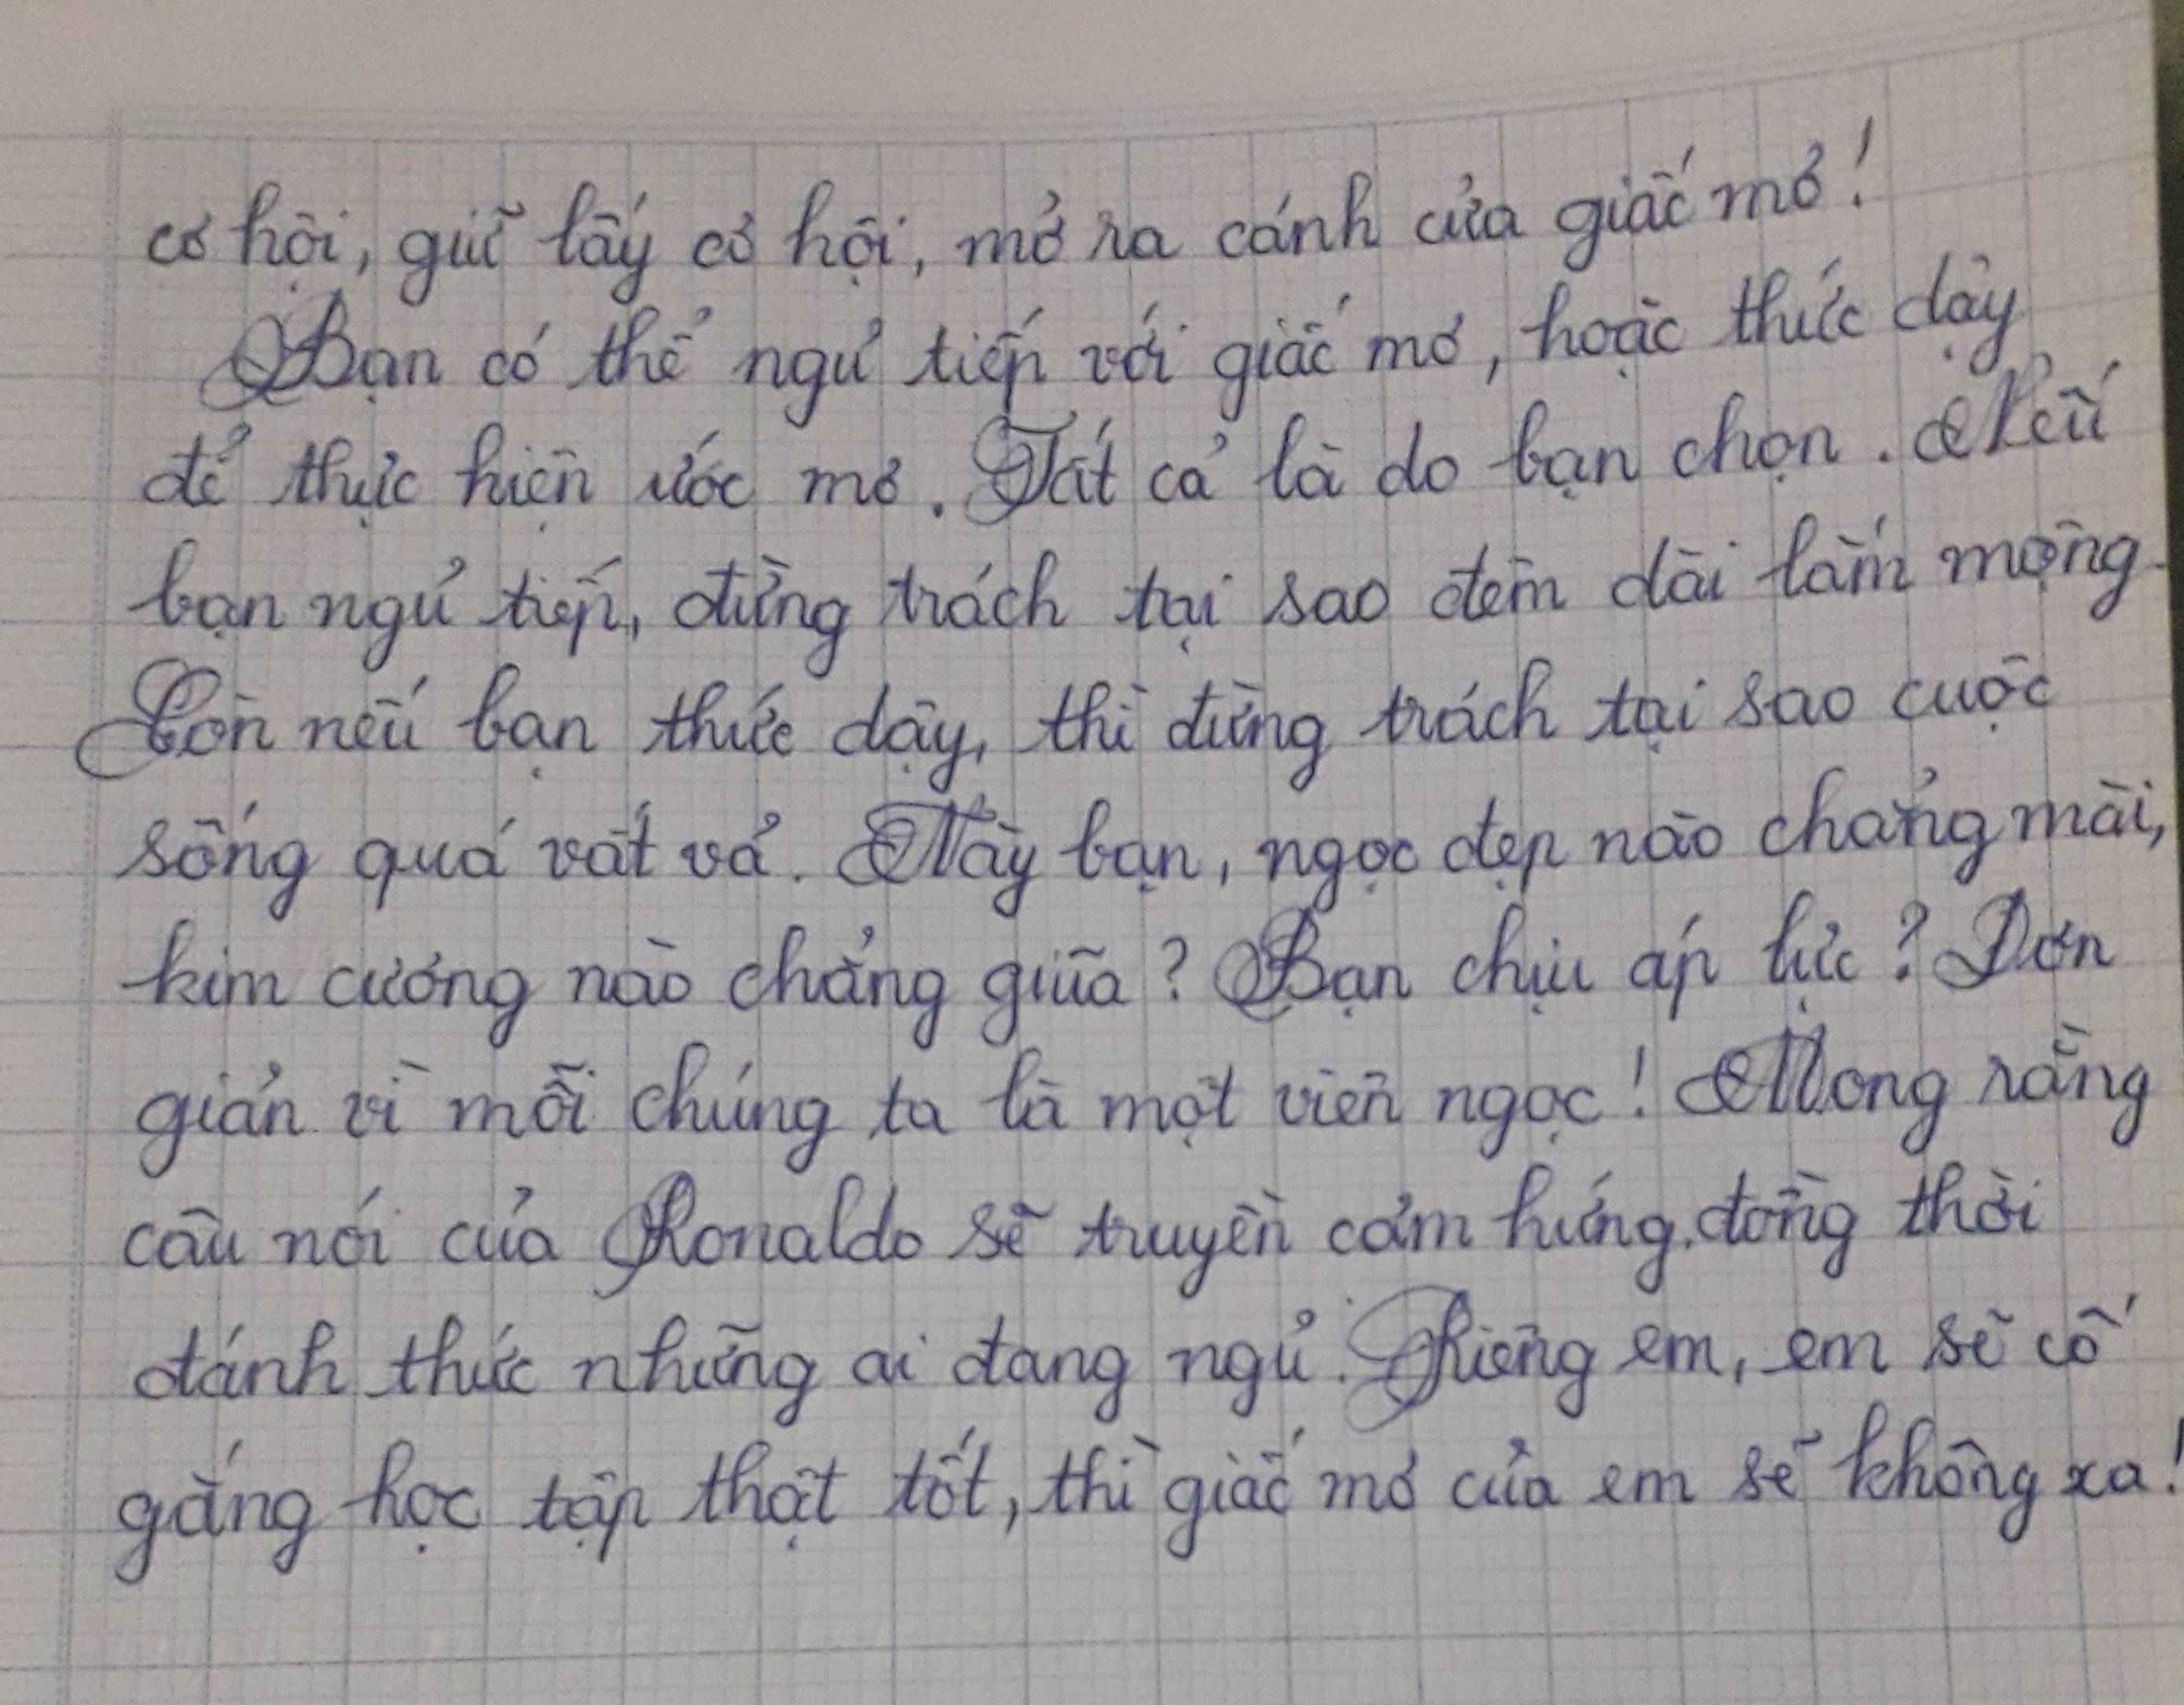 cơ hội, giữ lấy cơ hội, mở ra cánh cửa giấc mơ!
Bạn có thể ngủ tiếp với giấc mơ, hoặc thức dậy
để thực hiện ước mơ. Tất cả là do bạn chọn. Nếu
bạn ngủ tiếp, đừng trách tại sao đêm dài lắm mộng.
Còn nếu bạn thức dậy, thì đừng trách tại sao cuộc
sống quá vất vả. Này bạn, ngọc đẹp nào chẳng mài,
kim cương nào chẳng giũa? Bạn chịu áp lực? Đơn
giản vì mỗi chúng ta là một viên ngọc! Mong rằng
câu nói của Ronaldo sẽ truyền cảm hứng, đồng thời
đánh thức những ai đang ngủ. Riêng em, em sẽ cố
gắng học tập thật tốt, thì giấc mơ của em sẽ không xa!